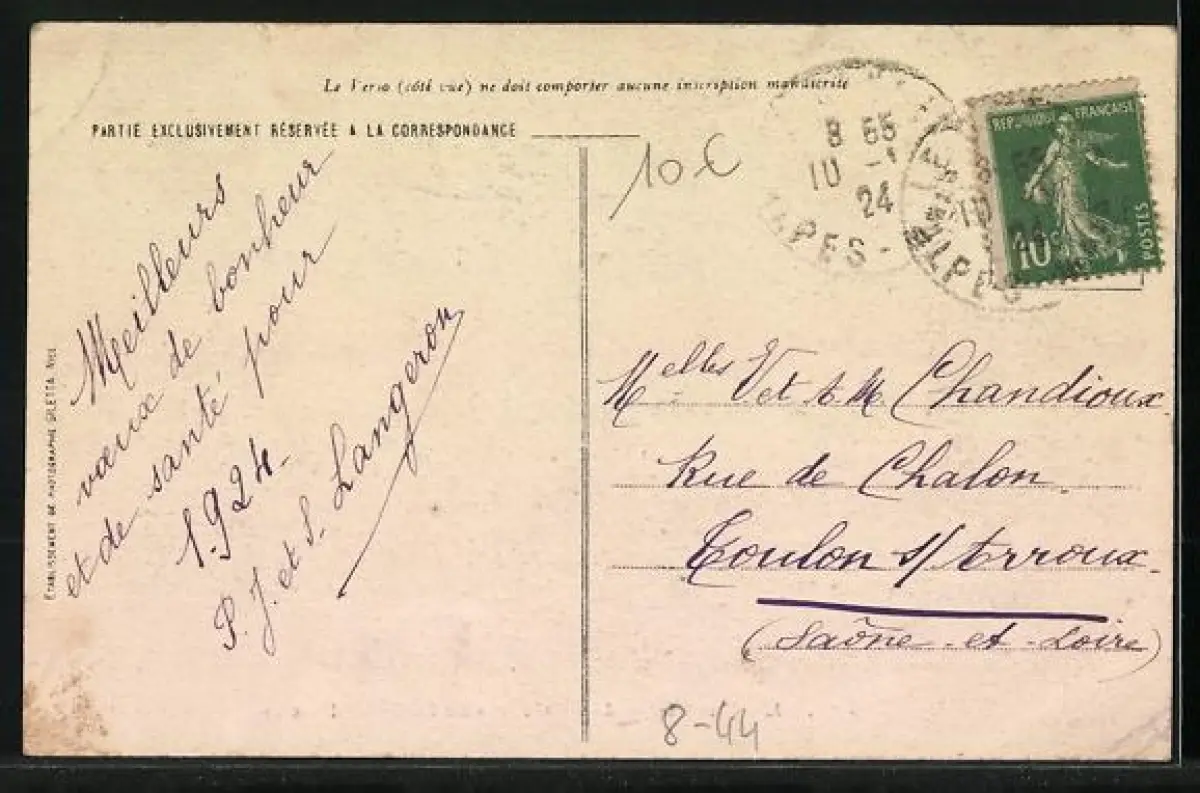 Le Verso (côté vue) ne doit comporter aucune inscription manuscrite
PARTIE EXCLUSIVEMENT RÉSERVÉE A LA CORRESPONDANCE
10 €
8 55
10 -1
24
ALPES-
RÉPUBLIQUE FRANÇAISE
10c
POSTES
ALPES
Meilleurs
vœux de bonheur
et de santé pour
1924-
P. J. et S. Langeron
ÉTABLISSEMENT DE PHOTOGRAPHIE GILETTA NICE
Melles V et M Chandioux
Rue de Chalon
Toulon s/Arroux.
(Saône-et-Loire)
8-44